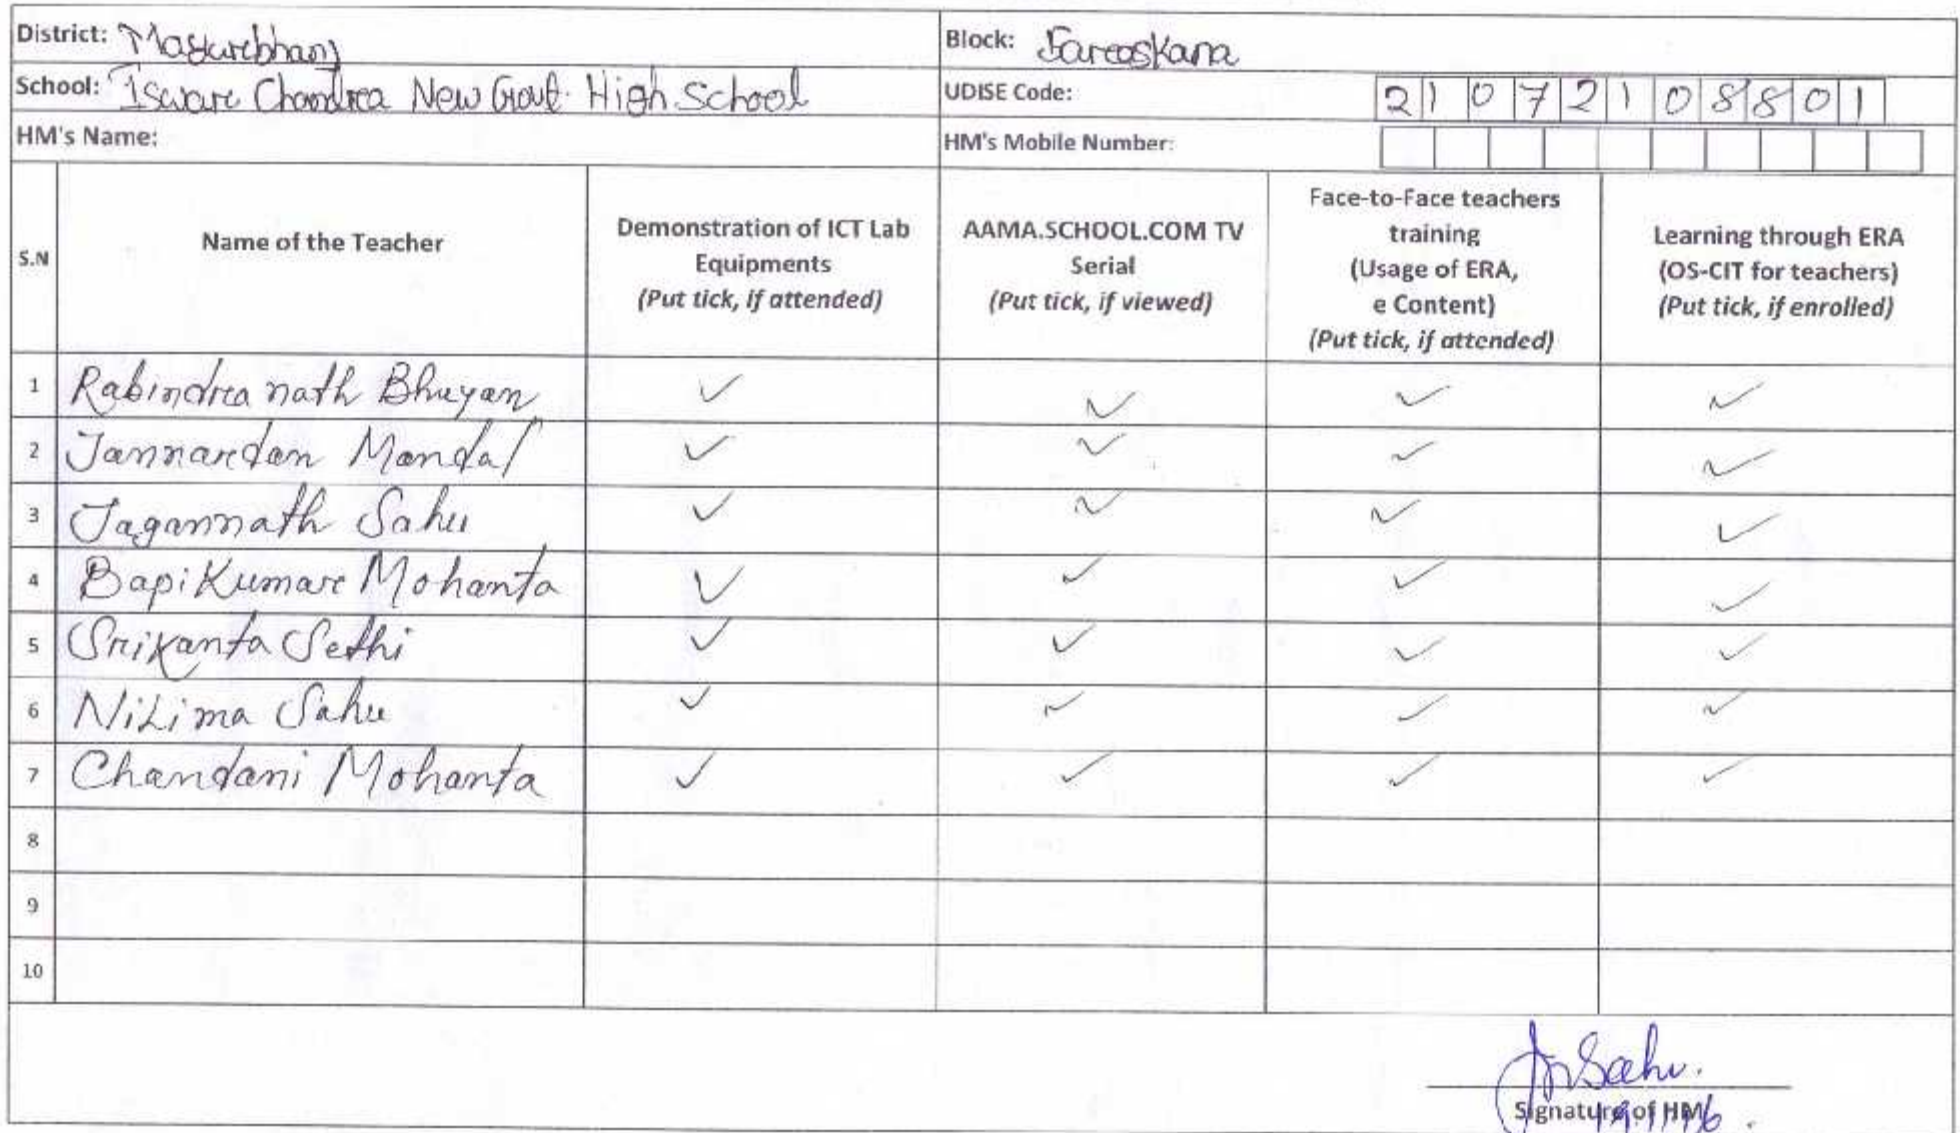 District: Mayurebhanj Block: Sareaskana
School: Isware Chandrea New Govt. High School UDISE Code: 21072108801
HM's Name: HM's Mobile Number:
S.N Name of the Teacher Demonstration of ICT Lab Equipments (Put tick, if attended) AAMA.SCHOOL.COM TV Serial (Put tick, if viewed) Face-to-Face teachers training (Usage of ERA, e Content) (Put tick, if attended) Learning through ERA (OS-CIT for teachers) (Put tick, if enrolled)
1 Rabindrea nath Bhuyan ✓ ✓ ✓ ✓
2 Jannardan Mandal ✓ ✓ ✓ ✓
3 Jagannath Sahu ✓ ✓ ✓ ✓
4 Bapi Kumare Mohanta ✓ ✓ ✓ ✓
5 Srikanta Sethi ✓ ✓ ✓ ✓
6 Nilima Sahu ✓ ✓ ✓ ✓
7 Chandani Mohanta ✓ ✓ ✓ ✓
8
9
10
Sahu.
Signature of HM